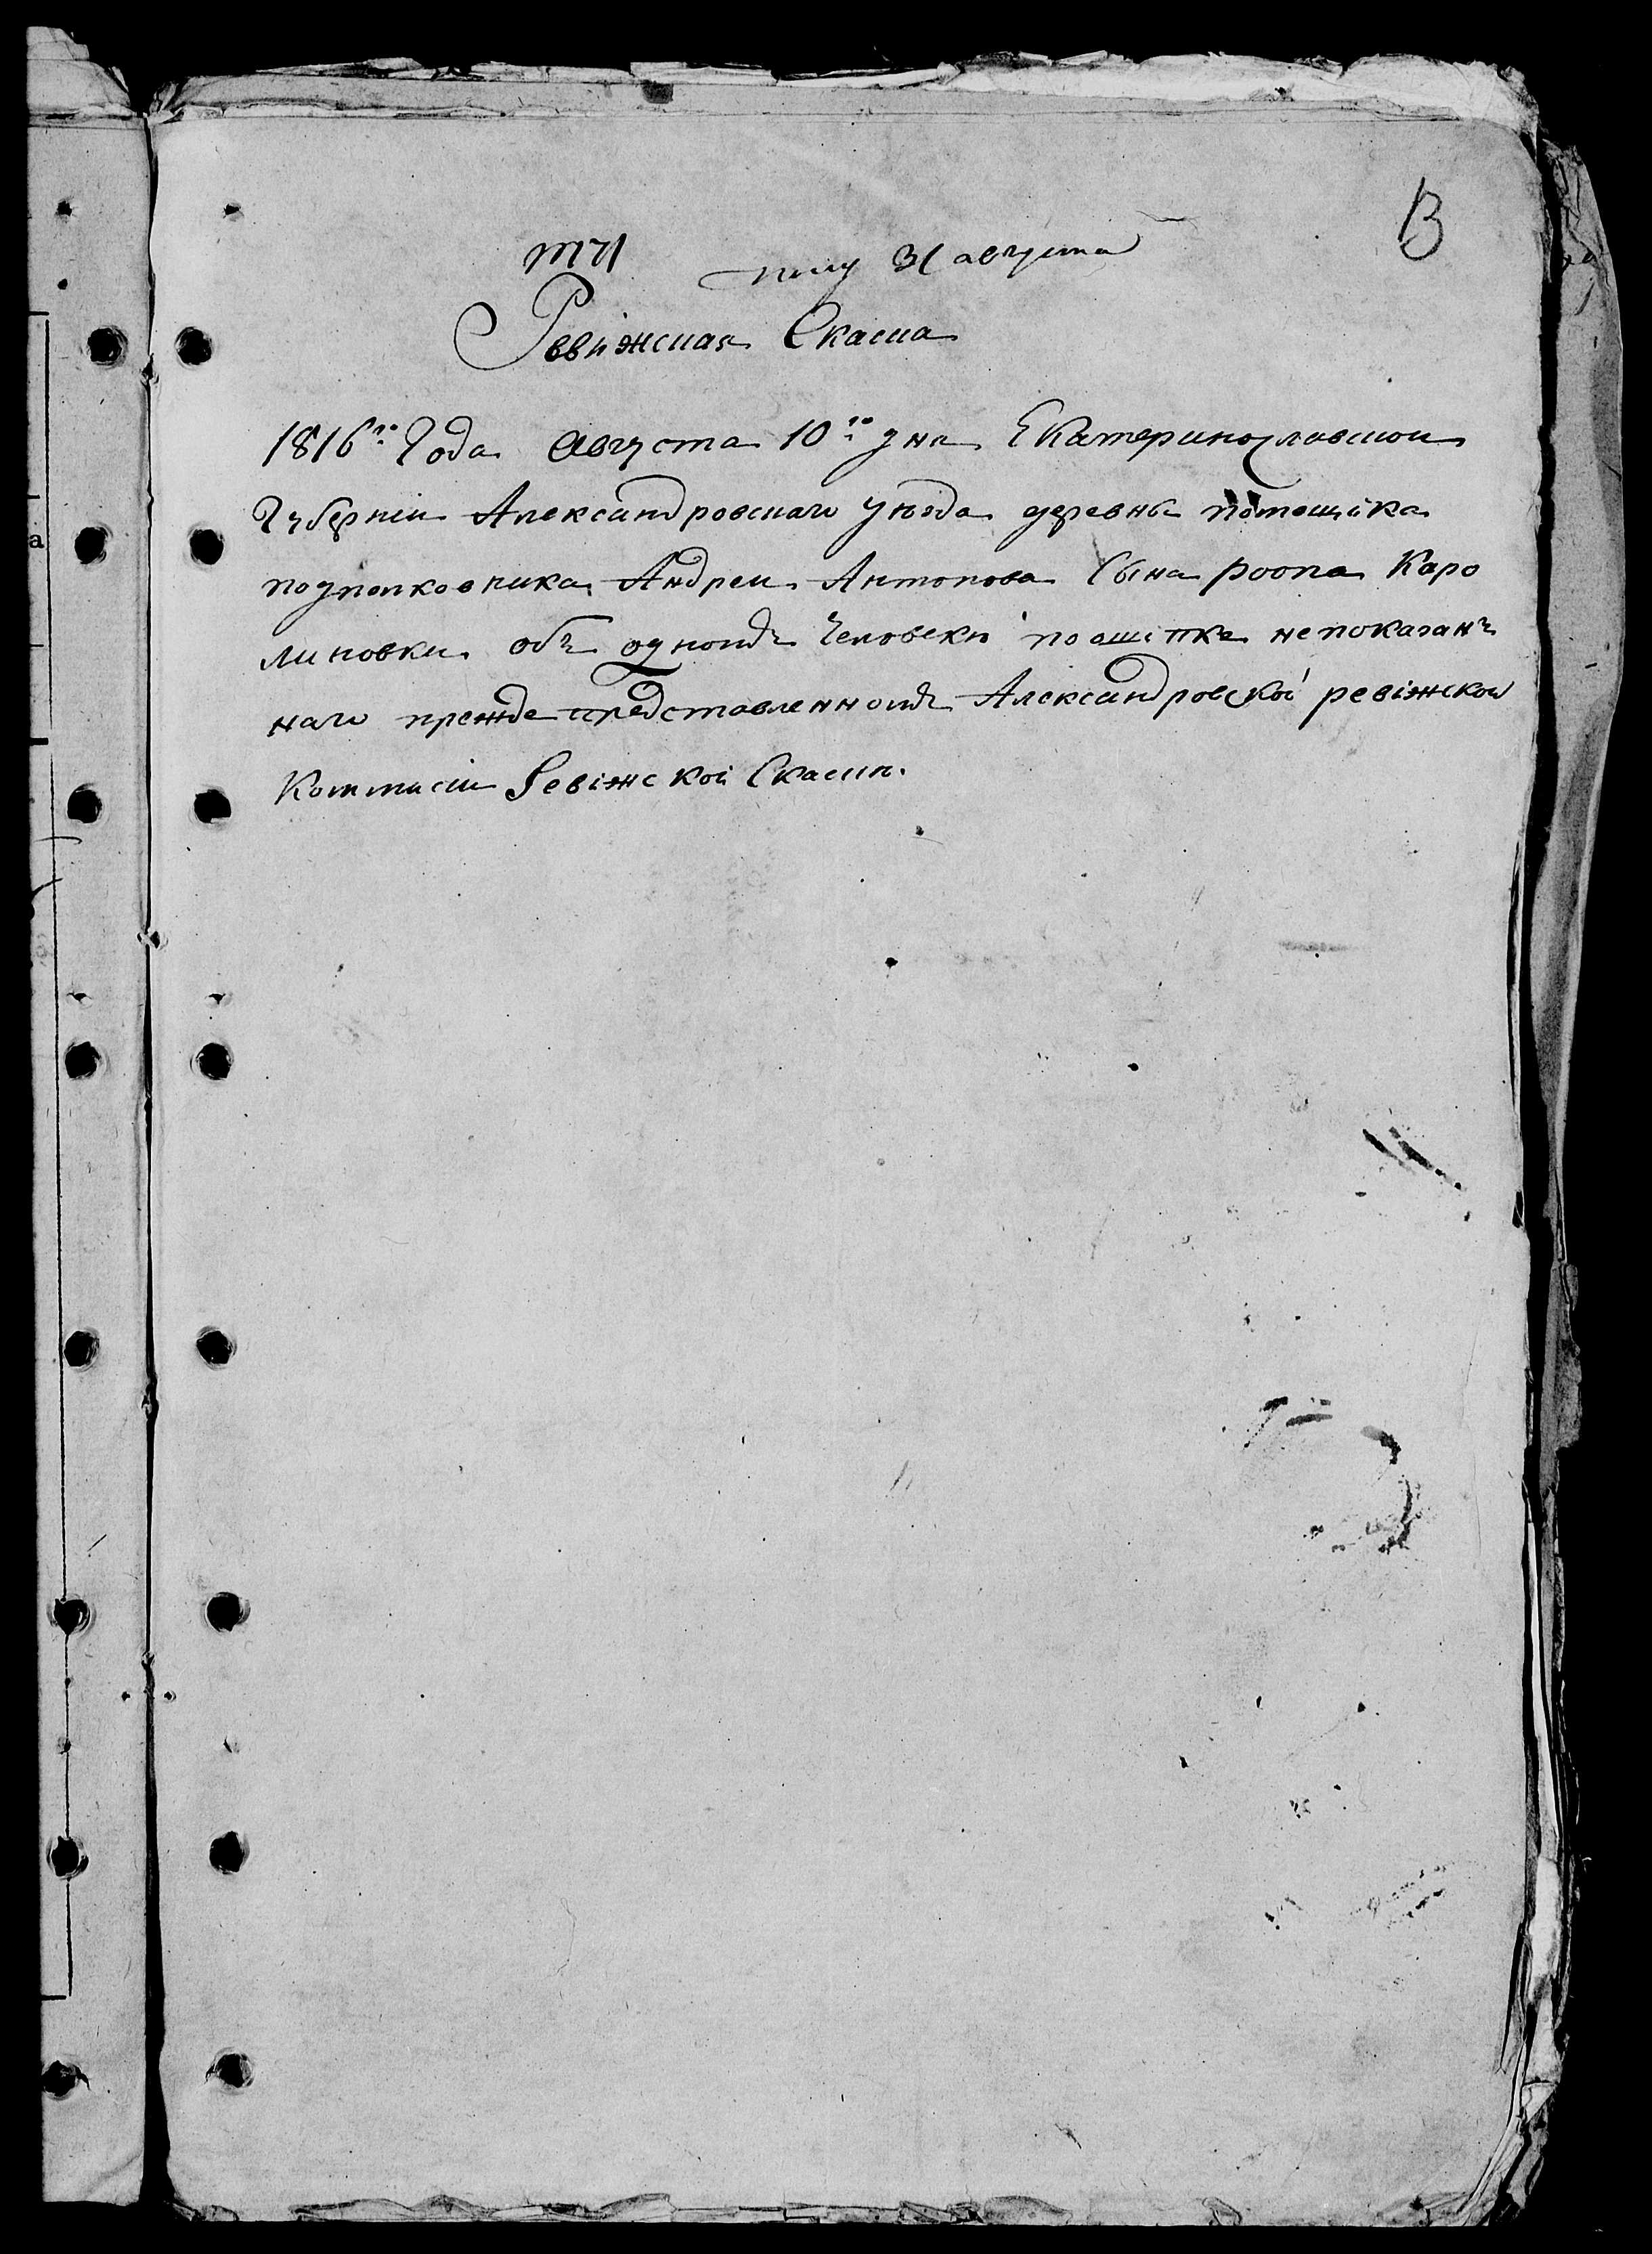 13
31 августа
Ревижская Скаска
1816го Года Августа 10го дня Екатеринославской
Губерніи Александровскаго уѣзда деревны помещіка
подполковника Андреи Антонова Сына роопа Каро
линовки объ одномъ Человекѣ по ошипке непоказанъ
наго прежде представленномъ Александровской ревіжской
Коммисіи Ревіжской Скаски.
а